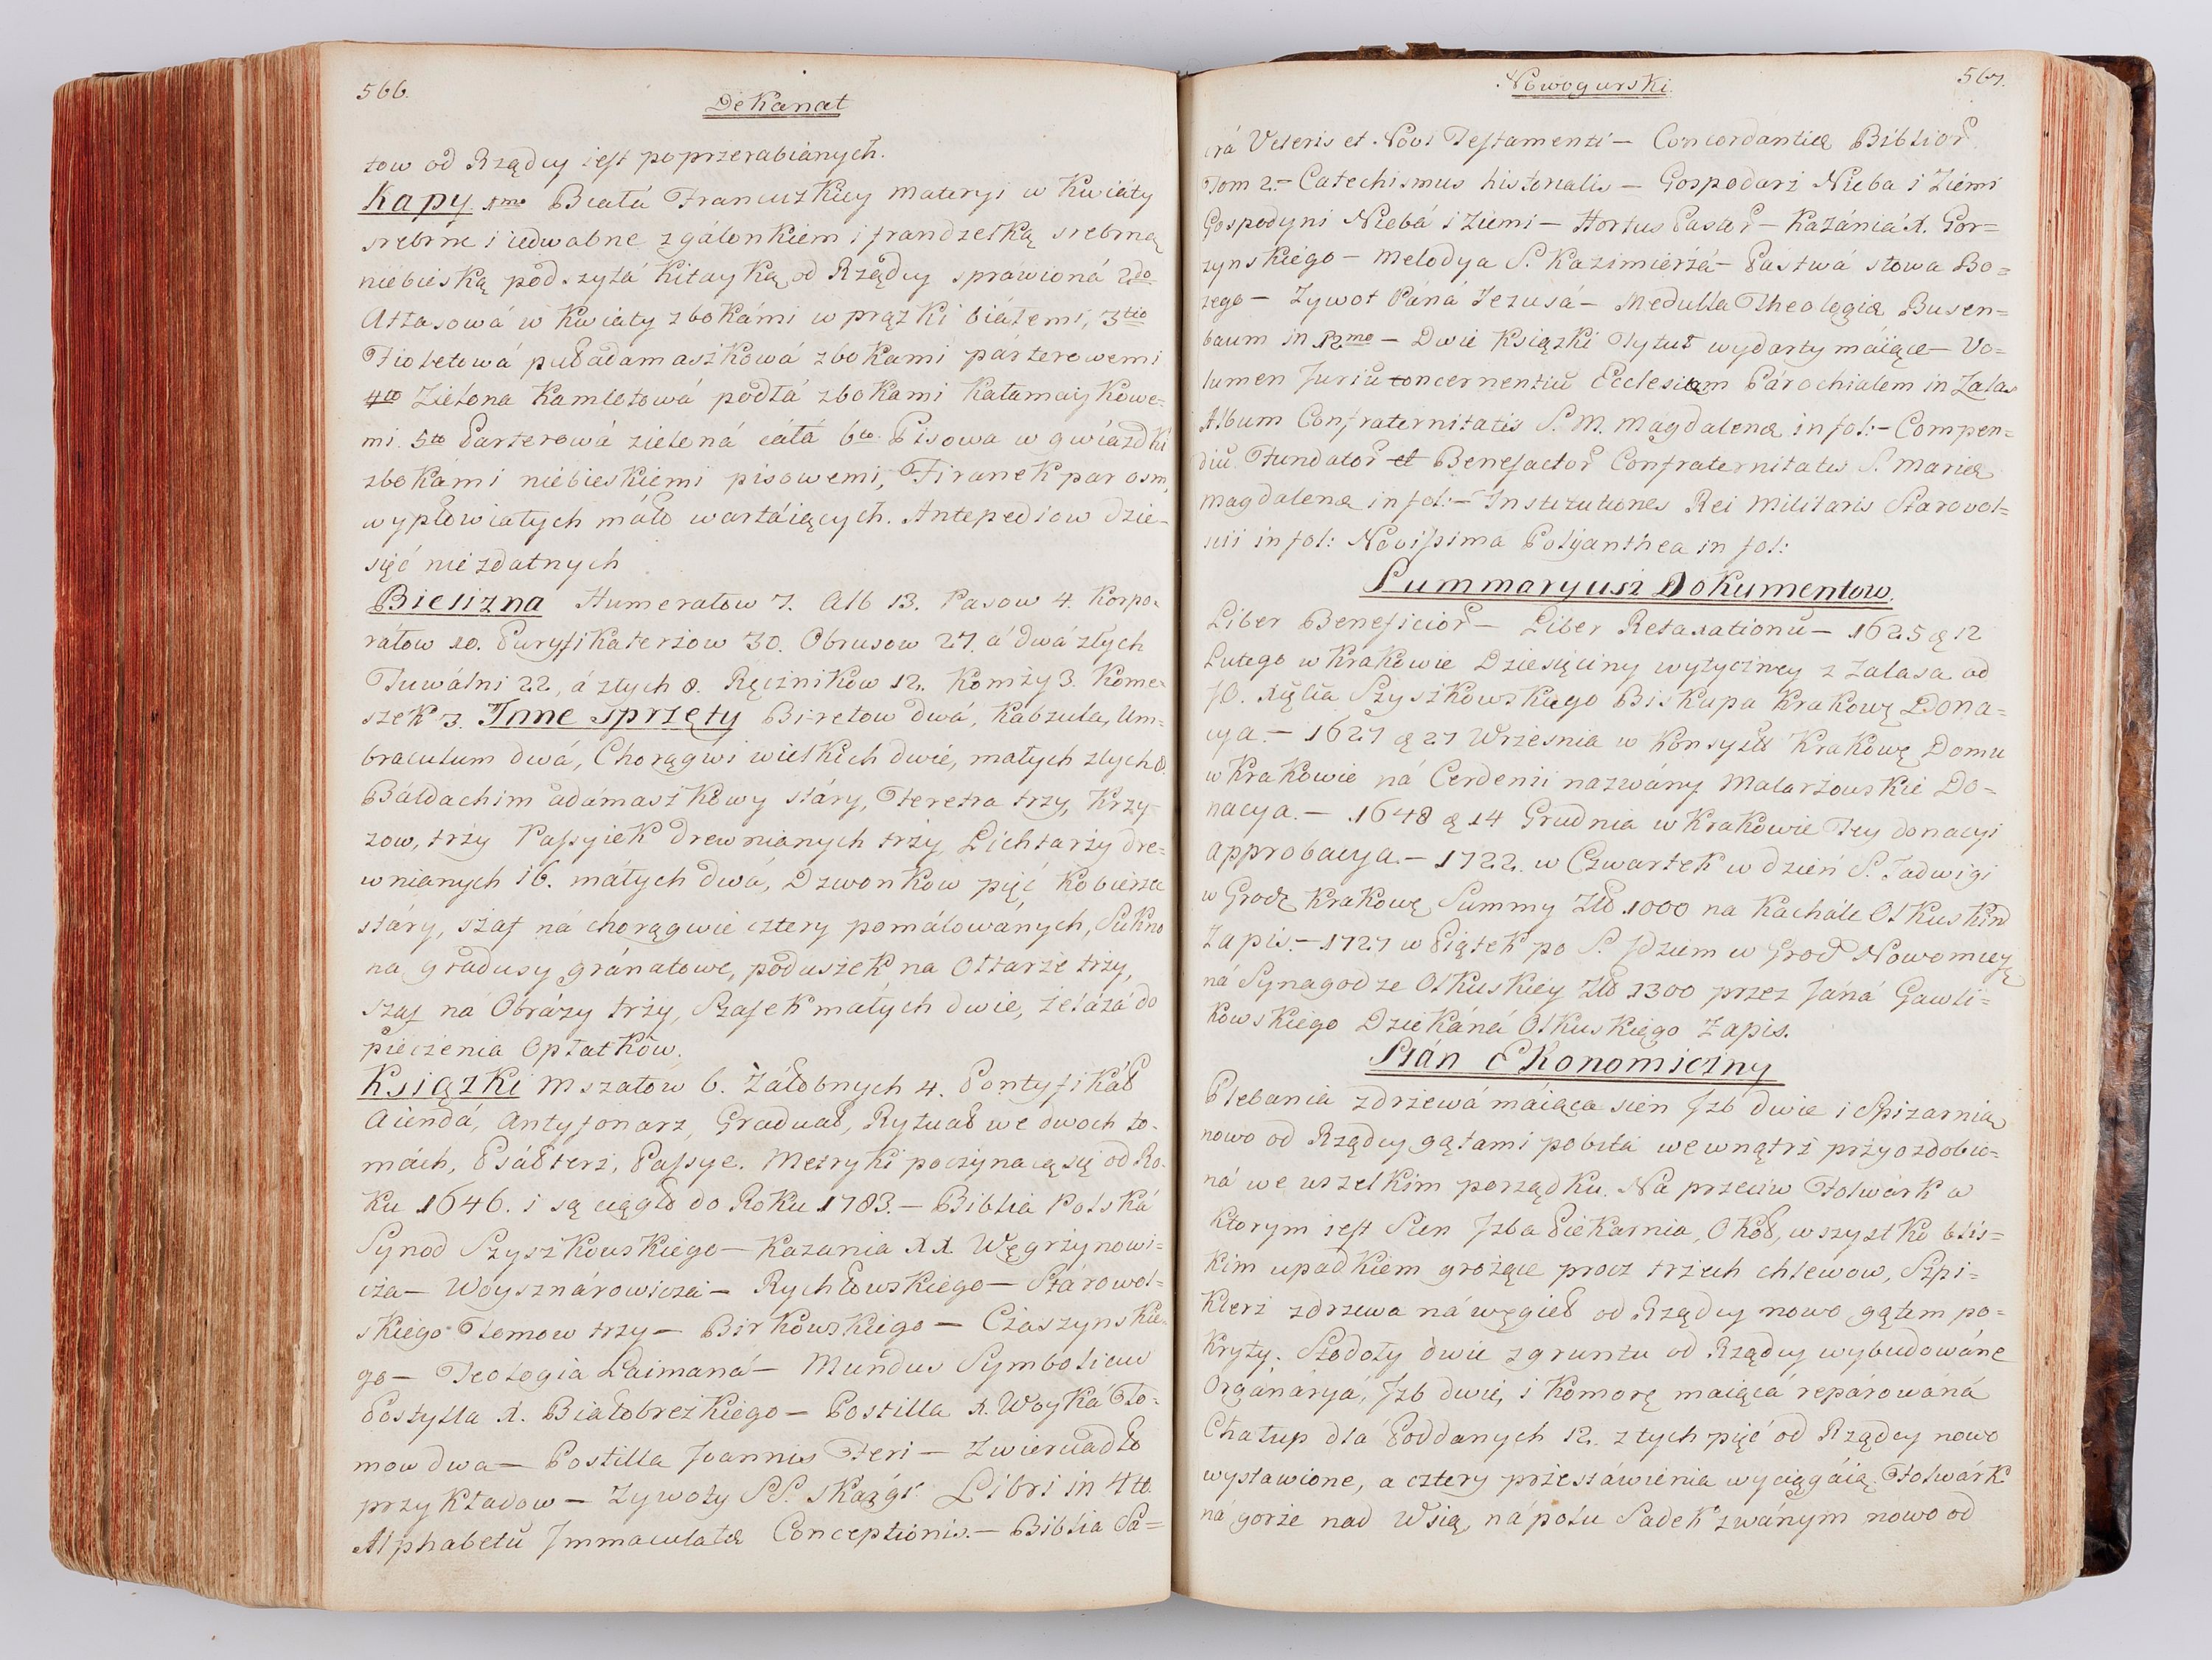 566.
Dekanat
tow od Rządcy iest poprzerabianych.
Kapy 1mo Biała Francuzkiey materyi w Kwiaty
srebrne i iedwabne z gálonkiem i frandzelką srebrną
niebieską podszytá Kitayką od Rządcy sprawioná 2do
Atłasowá w Kwiaty z bokámi w prążki białemi, 3tio
Fioletowá puładamaszkowá z bokami párterowemi
4to Zielona Kamlotowá podłá z bokami Kałamaykowe=
mi. 5to Parterowá zieloná cáła 6to Pisowa w gwiazdki
z bokámi niebieskiemi pisowemi, Firanek par osm,
wypłowiałych máło wartáiących. Antepediow dzie-
sięć niezdatnych
Bielizna Humerałow 7. Alb 13. Pasow 4. Korpo-
ráłow 10. Puryfikaterzow 30. Obrusow 27. á dwá złych
Tuwálni 22, á złych 8. Ręczników 12. Komży 3. Kome-
szek 3. Inne sprzęty Biretow dwá, Kabzula, Um=
braculum dwá, Chorągwi wielkich dwie, małych złych 8.
Báldachim adámaszkowy stáry, Feretra trzy, Krzy-
zow, trzy Passyiek drewnianych trzy, Lichtarzy dre=
wnianych 16. máłych dwá, Dzwonkow pięć, Kobierzec
stáry, száf ná chorągwie cztery pomálowánych, Sukno
na gradusy gránatowe, poduszek na Ołtarze trzy,
szaf na Obrázy trzy, Szafek máłych dwie, żelázá do
pieczenia Opłatków.
Książki Mszałow 6. Záłobnych 4. Pontyfikáł
Aiendá, Antyfonarz, Graduał, Rytuał we dwoch to-
mách, Psáłterz, Passye. Metryki poczynaią się od Ro-
ku 1646. i są ciągło do Roku 1783. — Biblia Polská
Synod Szyszkowskiego — Kazania XX. Węgrzynowi=
cza — Woysznárowicza — Rychłowskiego — Stárowol=
skiego Tomow trzy — Birkowskiego — Ciaszynskie-
go — Teologia Laimaná — Mundus Symbolicus
Postylla X. Białobrezkiego — Postilla X. Woyká To=
mow dwa — Postilla Joannis Feri — Zwierciadło
przykładow — Zywoty SS. Skargi. Libri in 4to.
Alphabetū Immaculatæ Conceptionis. — Biblia Sa=
Nowogurski
567.
crá Veteris et Novi Testamenti — Concordantiæ Biblior
Tom 2. — Catechismus historialis — Gospodarz Nieba i Ziemi
Gospodyni Niebá i Ziemi — Hortus Pastor — Kazániá X. Gor=
zynskiego — Melodya S. Kazimierzá — Pastwá słowa Bo=
zego — Zywot Páná Jezusá — Medulla Theologiæ Busen=
baum in 12mo — Dwie Książki Tytuł wydarty máiące — Vo=
lumen Juriū concernentiū Ecclesiam Párochialem in Zalas
Album Confraternitatis S. M. Magdalenæ in fol: — Compen=
diū Fundator et Benefactor Confraternitatis S. Mariæ
Magdalenæ in fol: — Institutiones Rei Militaris Starovol=
scii in fol: Novissima Polyanthea in fol:
Summaryusz Dokumentow.
Liber Beneficior — Liber Retaxationū — 1625 d 12
Lutego w Krakowie Dziesięciny wytyczney z Zalasa od
JO. Xięcia Szyszkowskiego Biskupa Krakowę Dona=
cya — 1627 d 27 Wrzesnia w Konsyst Krakowę Domu
w Krakowie ná Cerdenii nazwány Malarzowskie Do=
nacya. — 1648 d 14 Grudnia w Krakowie Tey donacyi
approbacya. — 1722. w Czwartek w dzień S. Jadwigi
w Grodz Krakowę Summy Zł 1000 na Kachále Olkuskim
Zapis. — 1727 w Piątek po S. Idzim w Grod Nowomiey
ná Synagodze Olkuskiey Zł 1300 przez Janá Gawli=
kowskiego Dziekáná Olkuskiego Zapis.
Stán Ekonomiczny
Plebania z drzewá máiąca sien Izb dwie i Spizarnią
nowo od Rządcy gątami pobita wewnątrz przyozdobio=
ná we wszelkim porządku. Na przeciw Folwárk w
ktorym iest Sien Izba Piekarnia, Okoł, wszystko blis=
kim upadkiem grożące procz trzech chlewow, Szpi=
klerz z drzewa ná węgieł od Rządcy nowo gątem po=
kryty. Stodoły dwie z gruntu od Rządcy wybudowáne
Orgánáryá, Izb dwie, i Komorę maiącá repárowáná
Chałup dlá Poddanych 12. z tych pięć od Rządcy nowo
wystawione, a cztery przestáwienia wyciągáią. Folwárk
ná gorze nad Wsią, ná polu Sadek zwánym nowo od